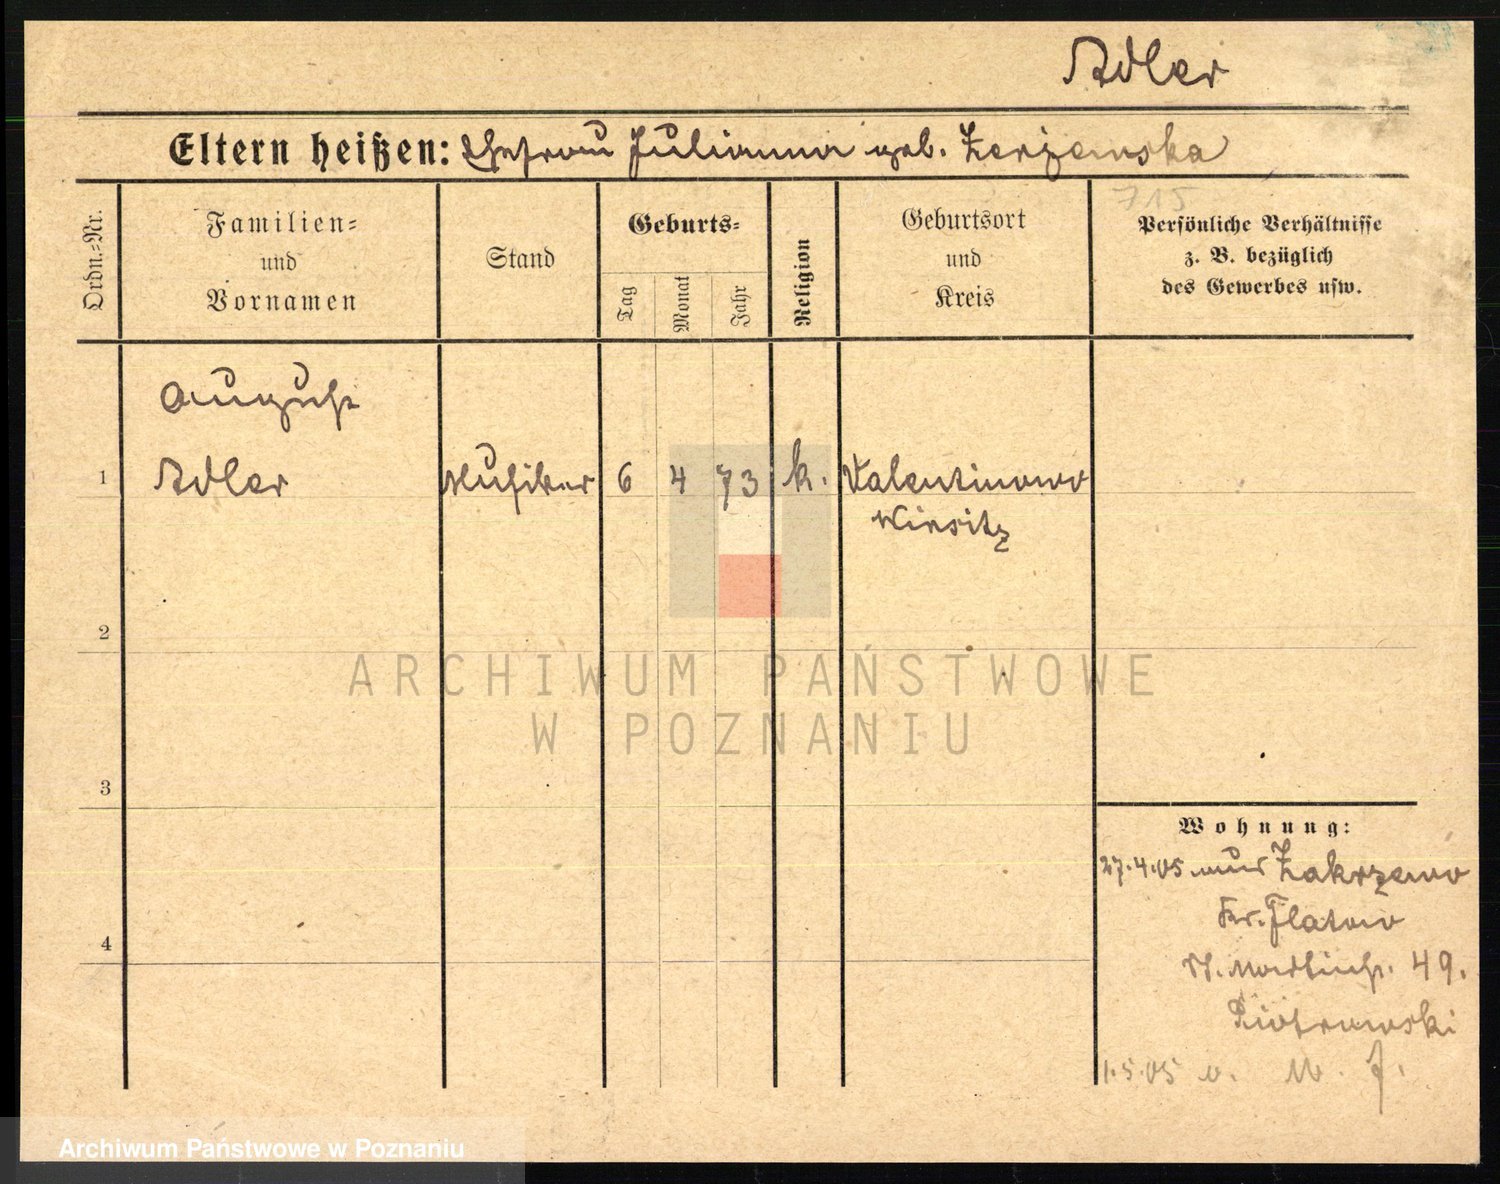 Adler
Eltern heißen: Ehefrau Julianna geb. Zerzemska
715
Ordn.=Nr.
Familien=
und
Vornamen
Stand
Geburts=
Tag
Monat
Jahr
Religion
Geburtsort
und
Kreis
Persönliche Verhältnisse
z. B. bezüglich
des Gewerbes usw.
August
1 Adler Musiker 6 4 73 k. Valentinowo
Wirsitz
2
3
4
Wohnung:
27.4.05 aus Zakrzewo
Kr. Flatow
49.
Piotrowski
1.5.05 v.
ARCHIWUM PAŃSTWOWE
W POZNANIU
Archiwum Państwowe w Poznaniu